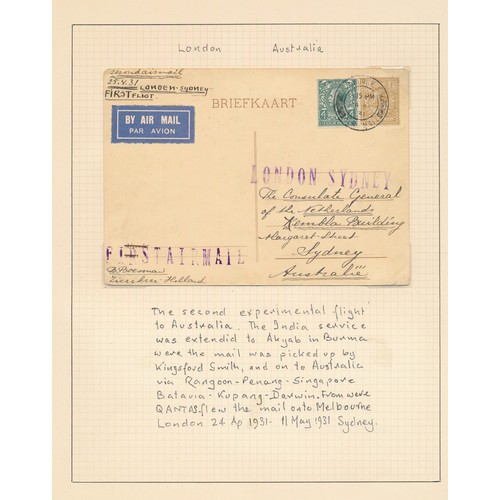 London Australia
25.4.31
LONDEN-SYDNEY
FIRST FLIGT.
BY AIR MAIL
PAR AVION
BRIEFKAART
LONDON SYDNEY
The Consulate General
of the Netherlands
Kembla Building
Margaret-Street
Sydney
Australië
FIRSTAIRMAIL
Holland
The second experimental flight
to Australia. The India service
was extendid to Akyab in Burma
were the mail was picked up by
Kingsford Smith, and on to Australia
via Rangoon-Penang-Singapore
Batavia-Kupang-Darwin. From were
QANTAS flew the mail onto Melbourne
London 24 Ap 1931- 11 May 1931 Sydney.